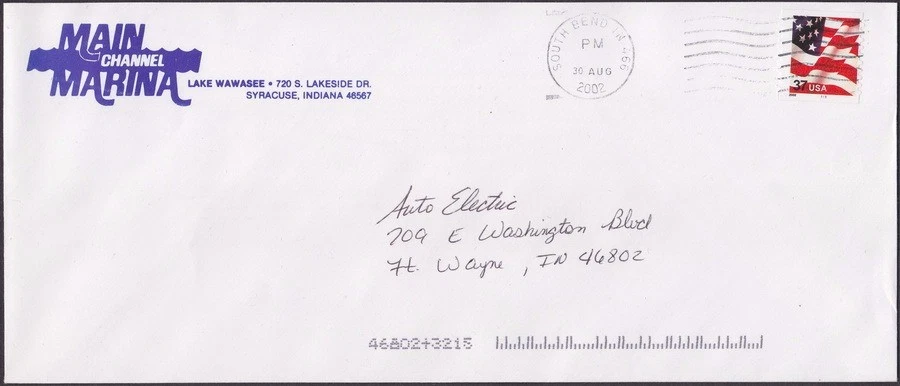 MAIN
CHANNEL
MARINA
LAKE WAWASEE • 720 S. LAKESIDE DR.
SYRACUSE, INDIANA 46567
SOUTH BEND IN 466
PM
30 AUG
2002
37 USA
Auto Electric
709 E Washington Blvd
Ft. Wayne, IN 46802
46802+3215